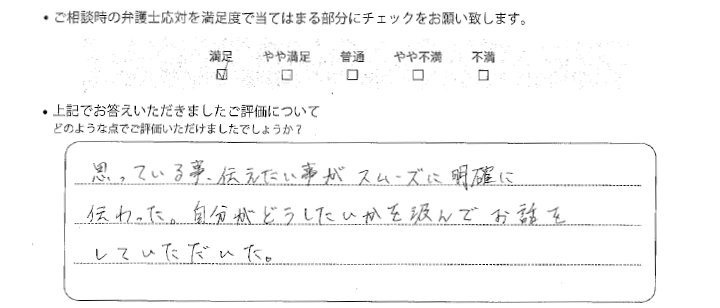 • ご相談時の弁護士応対を満足度で当てはまる部分にチェックをお願い致します。
満足 やや満足 普通 やや不満 不満
☑ □ □ □ □
• 上記でお答えいただきましたご評価について
どのような点でご評価いただけましたでしょうか？
思っている事、伝えたい事がスムーズに明確に
伝わった。自分がどうしたいかを汲んでお話を
していただいた。